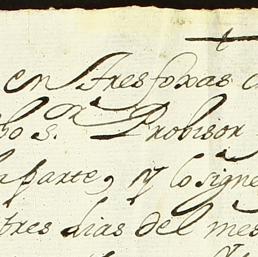 en tres foxas
ho s.ᵒʳ Probisor
la parte, y lo signe
tres dias del mes